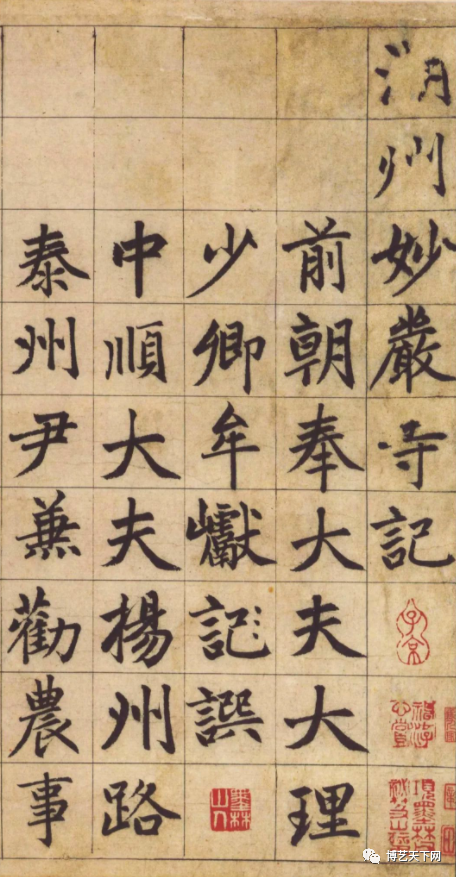 湖州妙嚴寺記
前朝奉大夫大理
少卿牟巘記譔
中順大夫揚州路
泰州尹兼勸農事
子京
墨林山人
博艺天下网